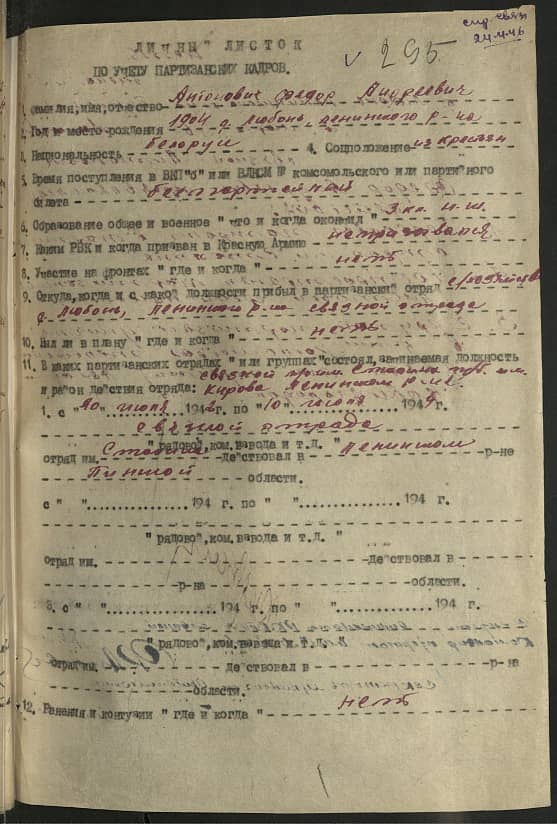 спр. связн
24.4.46
ЛИЧНЫ" ЛИСТОК
v 295.
ПО УЧЕТУ ПАРТИЗАНСКИХ КАДРОВ.
1. Фамилия, имя, отчество Антонович Федор Андреевич
2. Год и место рождения 1904 д. Любань Ленинского р-на
3. Национальность белорус 4. Соцположение из крестьян
5. Время поступления в ВКП"б" или ВЛКСМ № комсомольского или партийного
билета беспартейный
6. Образование общее и военное "что и когда окончил" 3 кл. н.ш.
7. Каким РВК и когда призван в Красную Армию непризывался
8. Участие на фронтах "где и когда" нетъ
9. Откуда, когда и с какой должности прибыл в партизанский отряд
д. Любань, Ленинского р-на связной отряда
10. Был ли в плену "где и когда" нетъ
11. В каких партизанских отрядах "или группах" состоял, занимаемая должность
и район действия отряда: связной Сталина им. Кирова Ленинском р-не
1. с " июня 194 г. по "10" июля 1944 г.
связной отряда
"рядовой, ком. взвода и т.д."
отряд им. Сталина действовал в Ленинском р-не
Пинской области.
с " " 194 г. по " " 194 г.
"рядовой, ком. взвода и т.д."
отряд им. действовал в
р-на области.
3. с " " 194 г. по " " 194 г.
"рядовой, ком. взвода и т.д."
отряд им. действовал в р-на
области.
12. Ранения и контузии "где и когда" нетъ